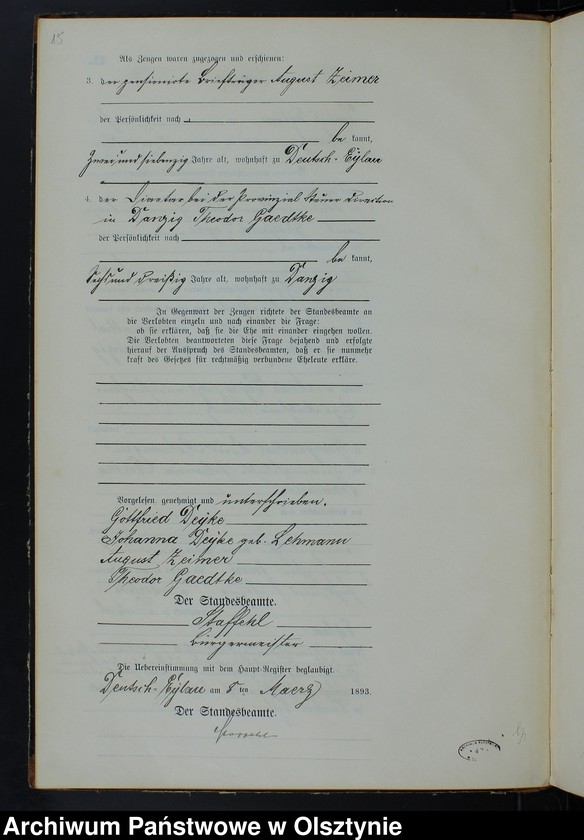 15
Als Zeugen waren zugezogen und erschienen:
3. der pensionirte Briefträger August Zeimer
der Persönlichkeit nach
be kannt,
Zweiundsiebenzig Jahre alt, wohnhaft zu Deutsch-Eylau
4. der Sekretär bei der Provinzial Steuer Direktion
in Danzig Theodor Gaedtke
der Persönlichkeit nach
be kannt,
Sechsunddreißig Jahre alt, wohnhaft zu Danzig
In Gegenwart der Zeugen richtete der Standesbeamte an
die Verlobten einzeln und nach einander die Frage:
ob sie erklären, daß sie die Ehe mit einander eingehen wollen.
Die Verlobten beantworteten diese Frage bejahend und erfolgte
hierauf der Ausspruch des Standesbeamten, daß er sie nunmehr
kraft des Gesetzes für rechtmäßig verbundene Eheleute erkläre.
Vorgelesen, genehmigt und unterschrieben.
Gottfried Deyke
Johanna Deyke geb. Lehmann
August Zeimer
Theodor Gaedtke
Der Standesbeamte.
Staffehl
Bürgermeister
Die Uebereinstimmung mit dem Haupt-Register beglaubigt.
Deutsch-Eylau am 8 ten Maerz 1893.
Der Standesbeamte.
Staffehl
Archiwum Państwowe w Olsztynie